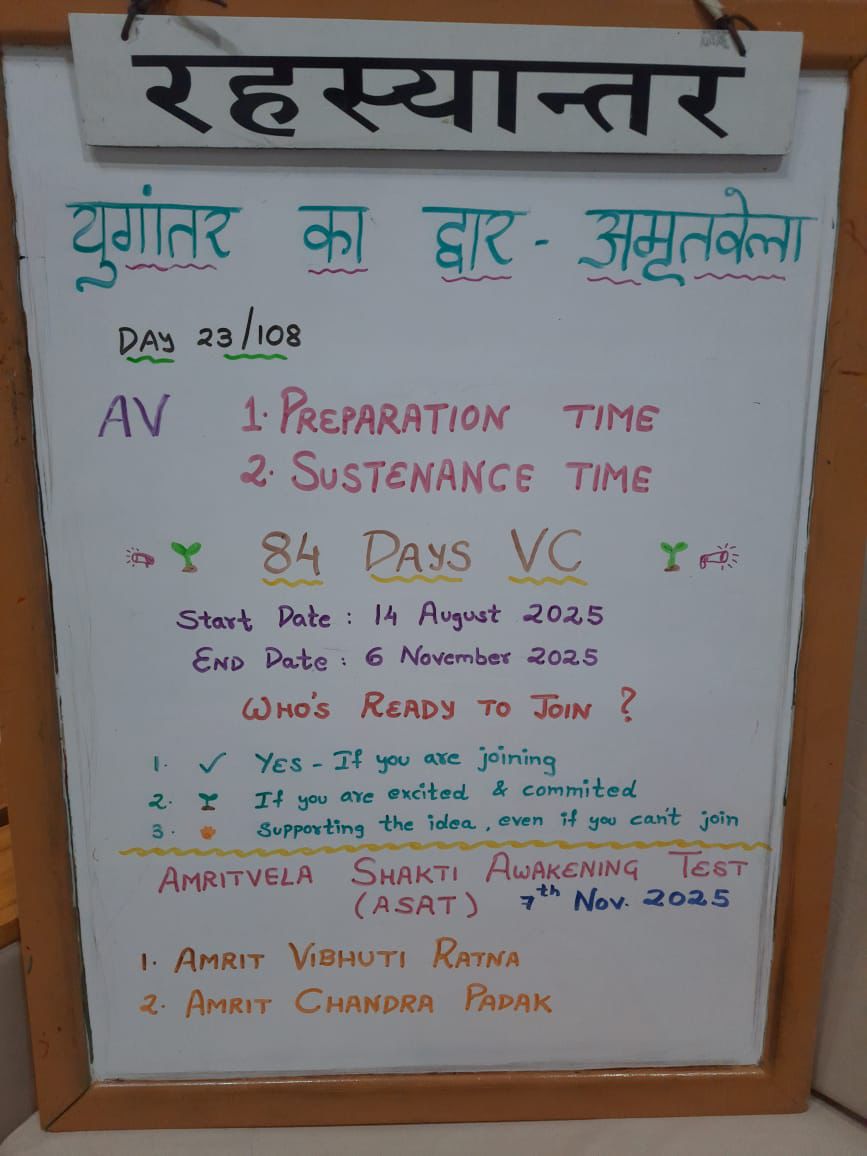 रहस्यान्तर
युगांतर का द्वार - अमृतवेला
DAY 23/108
AV 1. PREPARATION TIME
2. SUSTENANCE TIME
84 DAYS VC
Start Date : 14 August 2025
END Date : 6 November 2025
WHO'S READY TO JOIN ?
1. ✓ YES - If you are joining
2. 🌱 If you are excited & commited
3. Supporting the idea, even if you can't join
AMRITVELA SHAKTI AWAKENING TEST
(ASAT) 7th Nov. 2025
1. AMRIT VIBHUTI RATNA
2. AMRIT CHANDRA PADAK